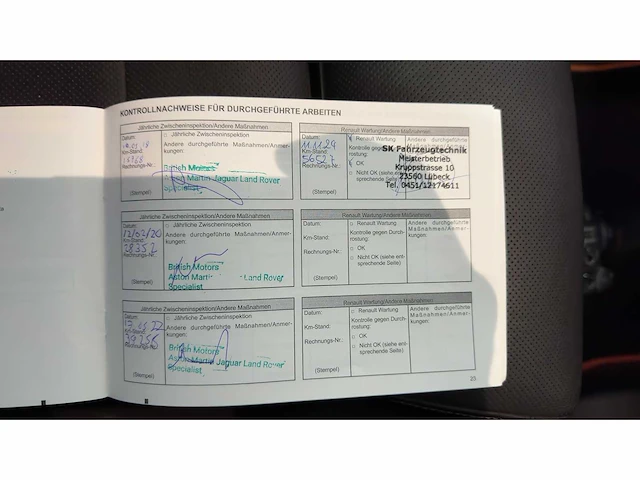 KONTROLLNACHWEISE FÜR DURCHGEFÜHRTE ARBEITEN
Jährliche Zwischeninspektion/Andere Maßnahmen
Datum:
□ Jährliche Zwischeninspektion
Andere durchgeführte Maßnahmen/Anmerkungen:
Km-Stand:
Rechnungs-Nr.:
British Motors
Aston Martin Jaguar Land Rover
Specialist
(Stempel)
Jährliche Zwischeninspektion/Andere Maßnahmen
Datum:
□ Jährliche Zwischeninspektion
12/02/20
Andere durchgeführte Maßnahmen/Anmer-
kungen:
Km-Stand:
28352
Rechnungs-Nr.:
British Motors
Aston Martin Land Rover
Specialist
(Stempel)
Jährliche Zwischeninspektion/Andere Maßnahmen
Datum:
□ Jährliche Zwischeninspektion
Andere durchgeführte Maßnahmen/Anmer-
kungen:
Km-Stand:
39256
Rechnungs-Nr.:
British Motors
Aston Martin Jaguar Land Rover
Specialist
(Stempel)
Renault Wartung/Andere Maßnahmen
Datum:
Renault Wartung
Andere durchgeführte
Kontrolle gegen
rostung:
Km-Stand:
56527
OK
Rechnungs-Nr.:
□ Nicht OK (siehe ent-
sprechende Seite)
SK Fahrzeugtechnik
Meisterbetrieb
Kruppstrasse 10
23560 Lübeck
Tel. 0451/12174611
(Stempel)
Renault Wartung/Andere Maßnahmen
Datum:
□ Renault Wartung
Andere durchgeführte
Maßnahmen/Anmer-
kungen:
Kontrolle gegen Durch-
rostung:
Km-Stand:
□ OK
Rechnungs-Nr.:
□ Nicht OK (siehe ent-
sprechende Seite)
(Stempel)
Renault Wartung/Andere Maßnahmen
Datum:
□ Renault Wartung
Andere durchgeführte
Maßnahmen/Anmer-
kungen:
Kontrolle gegen Durch-
rostung:
Km-Stand:
□ OK
Rechnungs-Nr.:
□ Nicht OK (siehe ent-
sprechende Seite)
(Stempel)
25